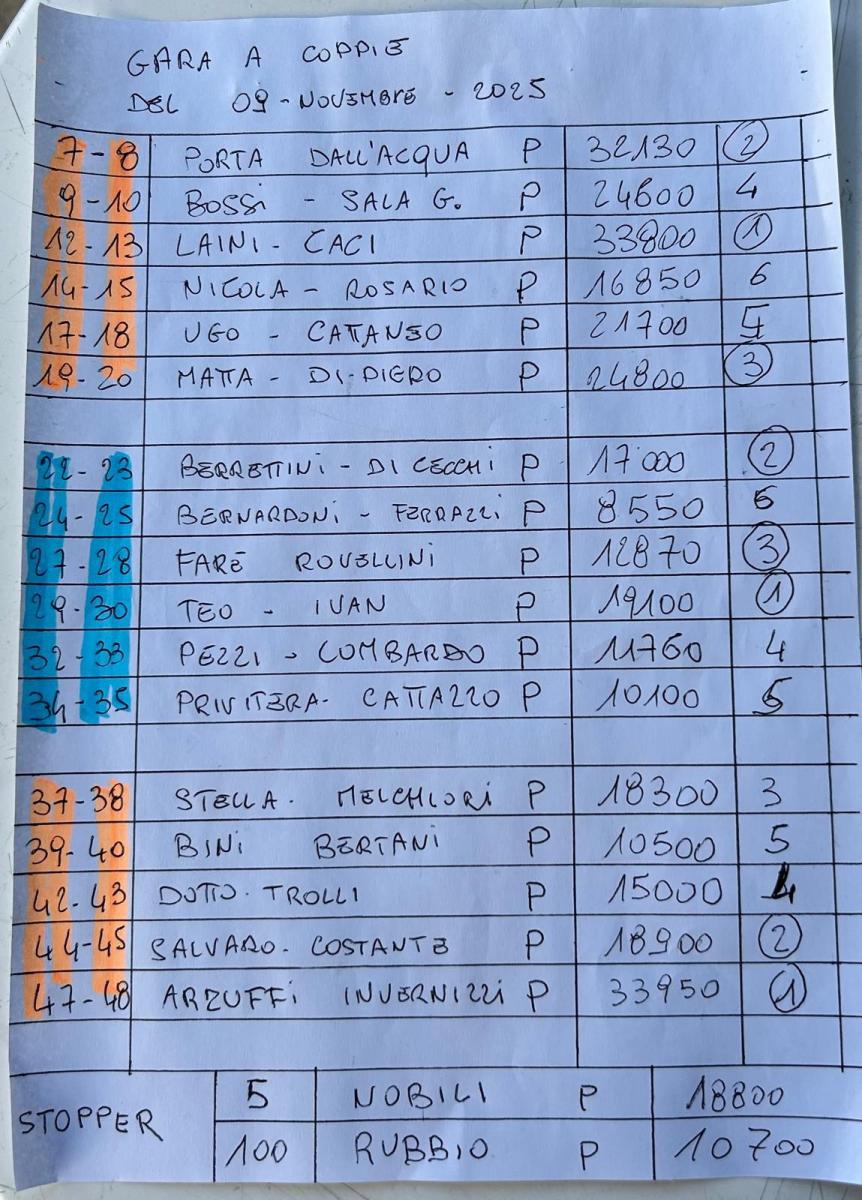 GARA A COPPIE
DEL 09-NOVEMBRE-2025
7-8 PORTA DALL'ACQUA P 32130 2
9-10 BOSSI - SALA G. P 24600 4
12-13 LAINI-CACI P 33800 1
14-15 NICOLA-ROSARIO P 16850 6
17-18 UGO-CATTANEO P 21700 5
19-20 MATTA-DI-PIERO P 24800 3
22-23 BERRETTINI-DI CECCHI P 17000 2
24-25 BERNARDONI-FERRAZZI P 8550 6
27-28 FARÈ ROVELLINI P 12870 3
29-30 TEO-IVAN P 19100 1
32-33 PEZZI-LOMBARDO P 11760 4
34-35 PRIVITERA-CATTAZZO P 10100 5
37-38 STELLA-MELCHIORI P 18300 3
39-40 BINI BERTANI P 10500 5
42-43 DOTTO-TROLLI P 15000 4
44-45 SALVARO-COSTANTE P 18900 2
47-48 ARZUFFI INVERNIZZI P 33950 1
STOPPER
5 NOBILI P 18800
100 RUBBIO P 10700